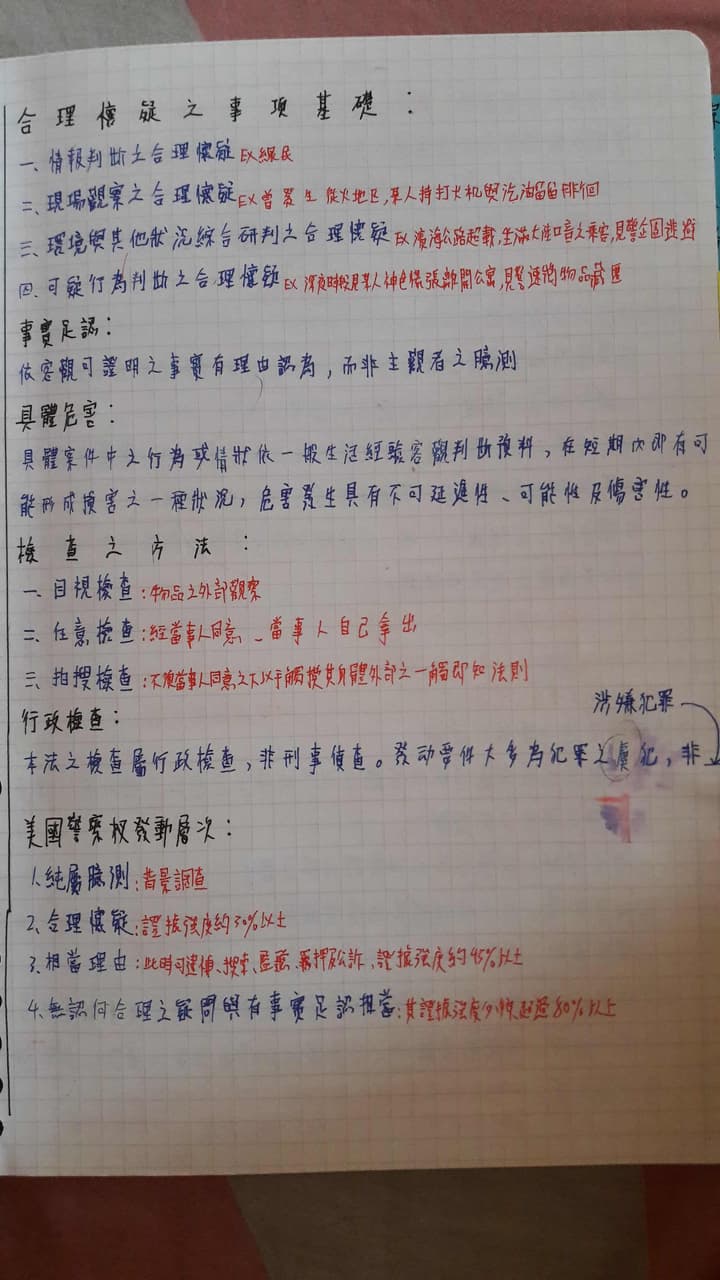 合理懷疑之事項基礎：
一、情報判斷之合理懷疑 EX線民
二、現場觀察之合理懷疑 EX曾發生縱火地區,某人持打火機與汽油留留徘徊
三、環境與其他狀況綜合研判之合理懷疑 EX濱海公路超載,坐滿大陸口音之乘客,見警企圖逃避
四、可疑行為判斷之合理懷疑 EX深夜時段見某人神色慌張離開公寓,見警速將物品藏匿
事實足認：
依客觀可證明之事實有理由認為，而非主觀者之臆測
具體危害：
具體案件中之行為或情狀依一般生活經驗客觀判斷預料，在短期內即有可
能形成損害之一種狀況，危害發生具有不可延遲性、可能性及傷害性。
檢查之方法：
一、目視檢查：物品之外部觀察
二、任意檢查：經當事人同意、當事人自己拿出
三、拍搜檢查：不須當事人同意之下以手觸摸其身體外部之一觸即知法則
行政檢查：
涉嫌犯罪
本法之檢查屬行政檢查，非刑事偵查。發動要件大多為犯罪之虞犯，非
美國警察權發動層次：
1.純屬臆測：背景調查
2.合理懷疑：證據強度約30%以上
3.相當理由：此時可逮捕、搜索、監聽、羈押及訴,證據強度約45%以上
4.無認何合理之疑問與有事實足認相當：其證據強度必須超過80%以上